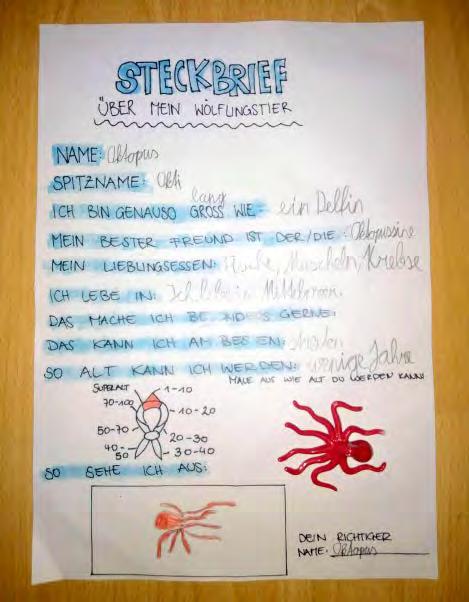 STECKBRIEF
ÜBER MEIN WÖLFLINGSTIER
NAME: Oktopus
SPITZNAME: Okti
lang
ICH BIN GENAUSO GROSS WIE: ein Delfin
MEIN BESTER FREUND IST DER/DIE: Oktopussine
MEIN LIEBLINGSESSEN: Muscheln, Krebse
ICH LEBE IN: Ich lebe in
DAS MACHE ICH BESONDERS GERNE:
DAS KANN ICH AM BESTEN:
SO ALT KANN ICH WERDEN: wenige Jahre
MALE AUS WIE ALT DU WERDEN KANNST
SUPERALT
1-10
70-100
10-20
50-70
20-30
40-50
30-40
SO SEHE ICH AUS:
DEIN RICHTIGER
NAME: Oktopus